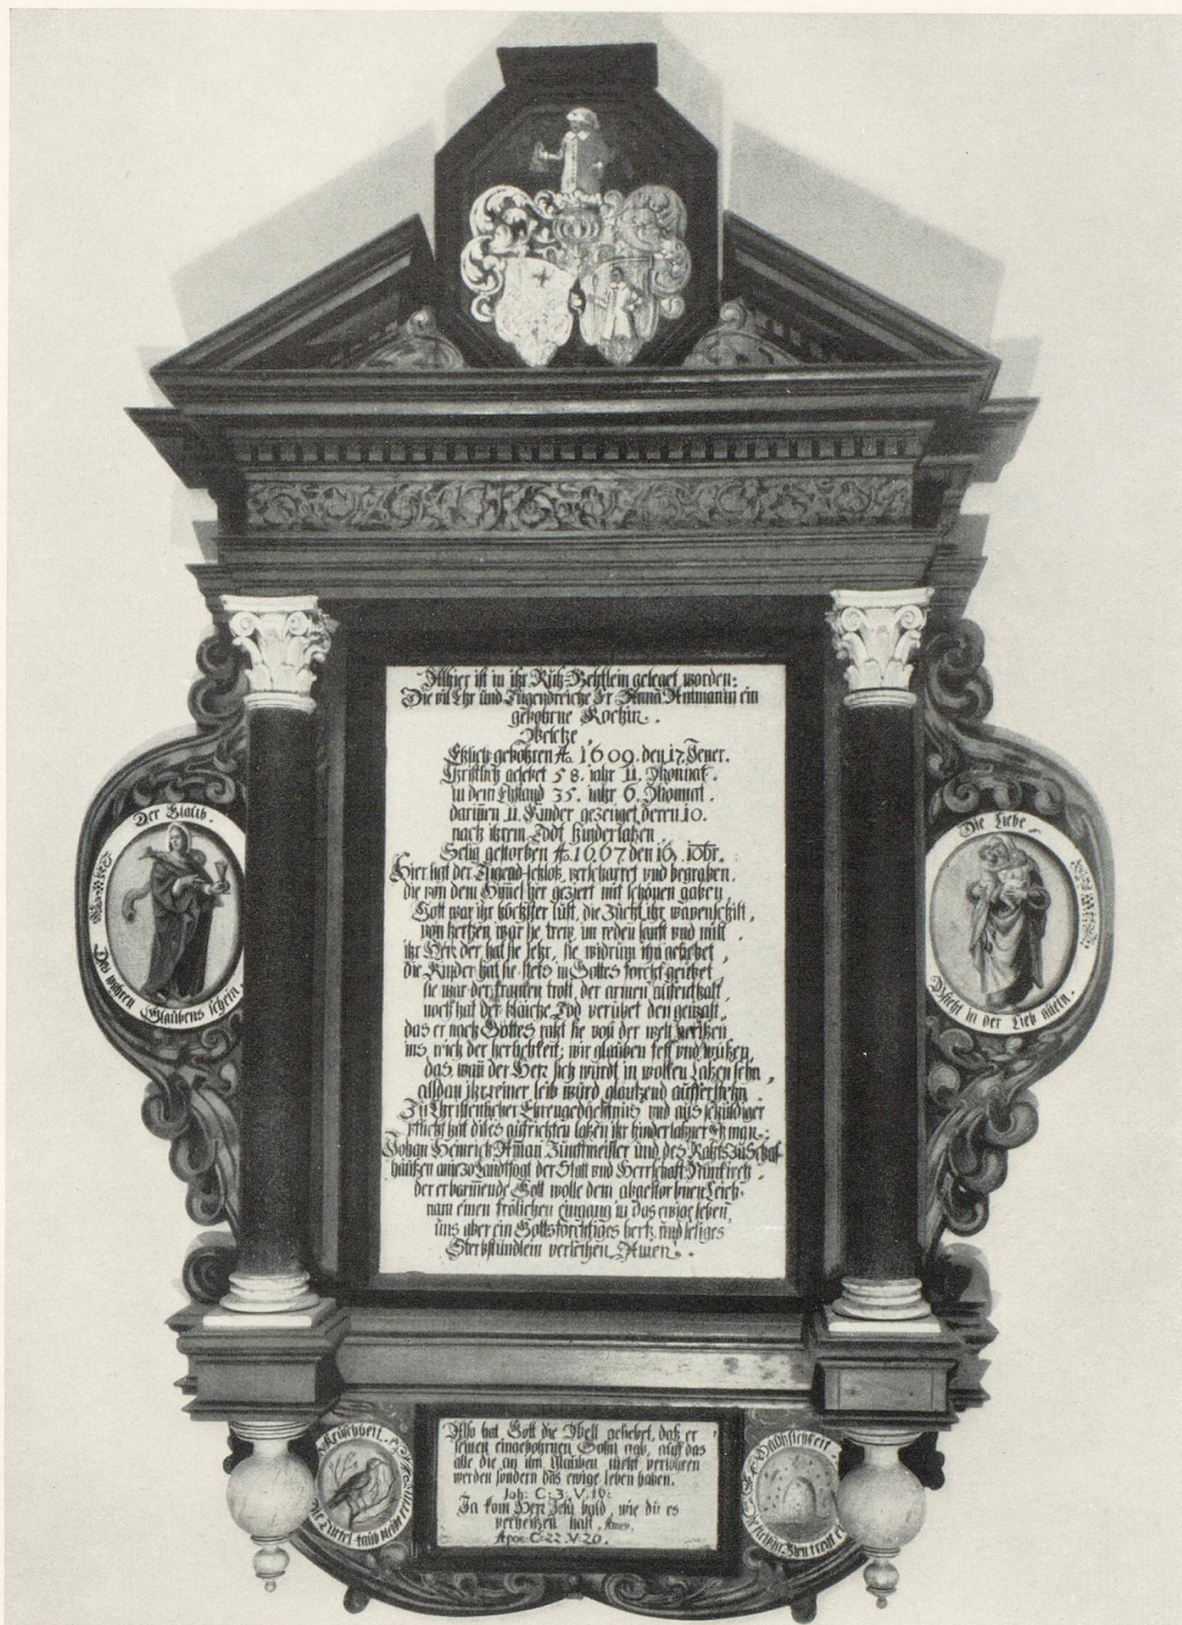 Allhier ist in ihr Ruh-Bethlein geleget worden:
Die vil Ehr und Tugendreiche Fr. Anna Ammanin ein
gebohrne Kochin.
Welche,
Ehlich gebohren Aō. 1609. den 17. Jener.
Christlich gelebet 58. jahr 11. Monnat.
in dem Ehstand 35. jahr 6. Monnat.
darinen 11. Kinder gezeuget, deren 10.
nach ihrem Todt hinderlaßen
Selig gestorben Aō. 1667. den 16. 10br.
Hier ligt der Tugend-schloß, verscharret vnd begraben,
die von dem Himel her geziert mit schönen gaben
Gott war ihr höchster lust, die zucht ihr wapenschilt,
von hertzen war sie trew, im reden sanft vnd milt
ihr Herr der hat sie sehr, sie widrum ihn geliebet,
die Kinder hat sie stets in Gottes forcht geübet
sie war der kranken trost, der armen aufenthalt,
noch hat der bleiche Tod verübet den gewalt,
das er nach Gottes raht sie von der welt gerißen
ins reich der herlichkeit; wir glauben fest vnd wüßen,
das, wan der Herr sich würdt in wolken laßen sehn,
alsdan ihr reiner leib würd glantzend aufferstehn.
Zu Christenlicher Ehrengedechtnus vnd aus schuldiger
pflicht hat dises aufrichten laßen ihr hinderlaßner Eh man:
Johan Heinrich Aman Zunftmeister und des Rahts zu Schaf
haußen anjezo Landtvogt der Statt vnd Herrschaft Neunkirch.
der erbarmende Gott wolle dem abgestorbnen Leich-
nam einen frölichen eingang in das ewige leben
uns aber ein Gottsförchtiges hertz und seliges
Sterbstündlein verleihen, Amen.
Der Glaub.
Des wahren Glaubens schein
Die Liebe
besteht in der Lieb allein.
Keuschheit.
Die Turtel-taub
Also hat Gott die Welt geliebet, daß er
seinen eingebohrnen Sohn gab, auff das
alle die an ihn glauben nicht verlohren
werden sondern das ewige leben haben.
Joh: C: 3. V. 16:
Ja kom Herr Jesu bald, wie du es
verheißen hast, Amen,
Apoc: C: 22. V. 20.